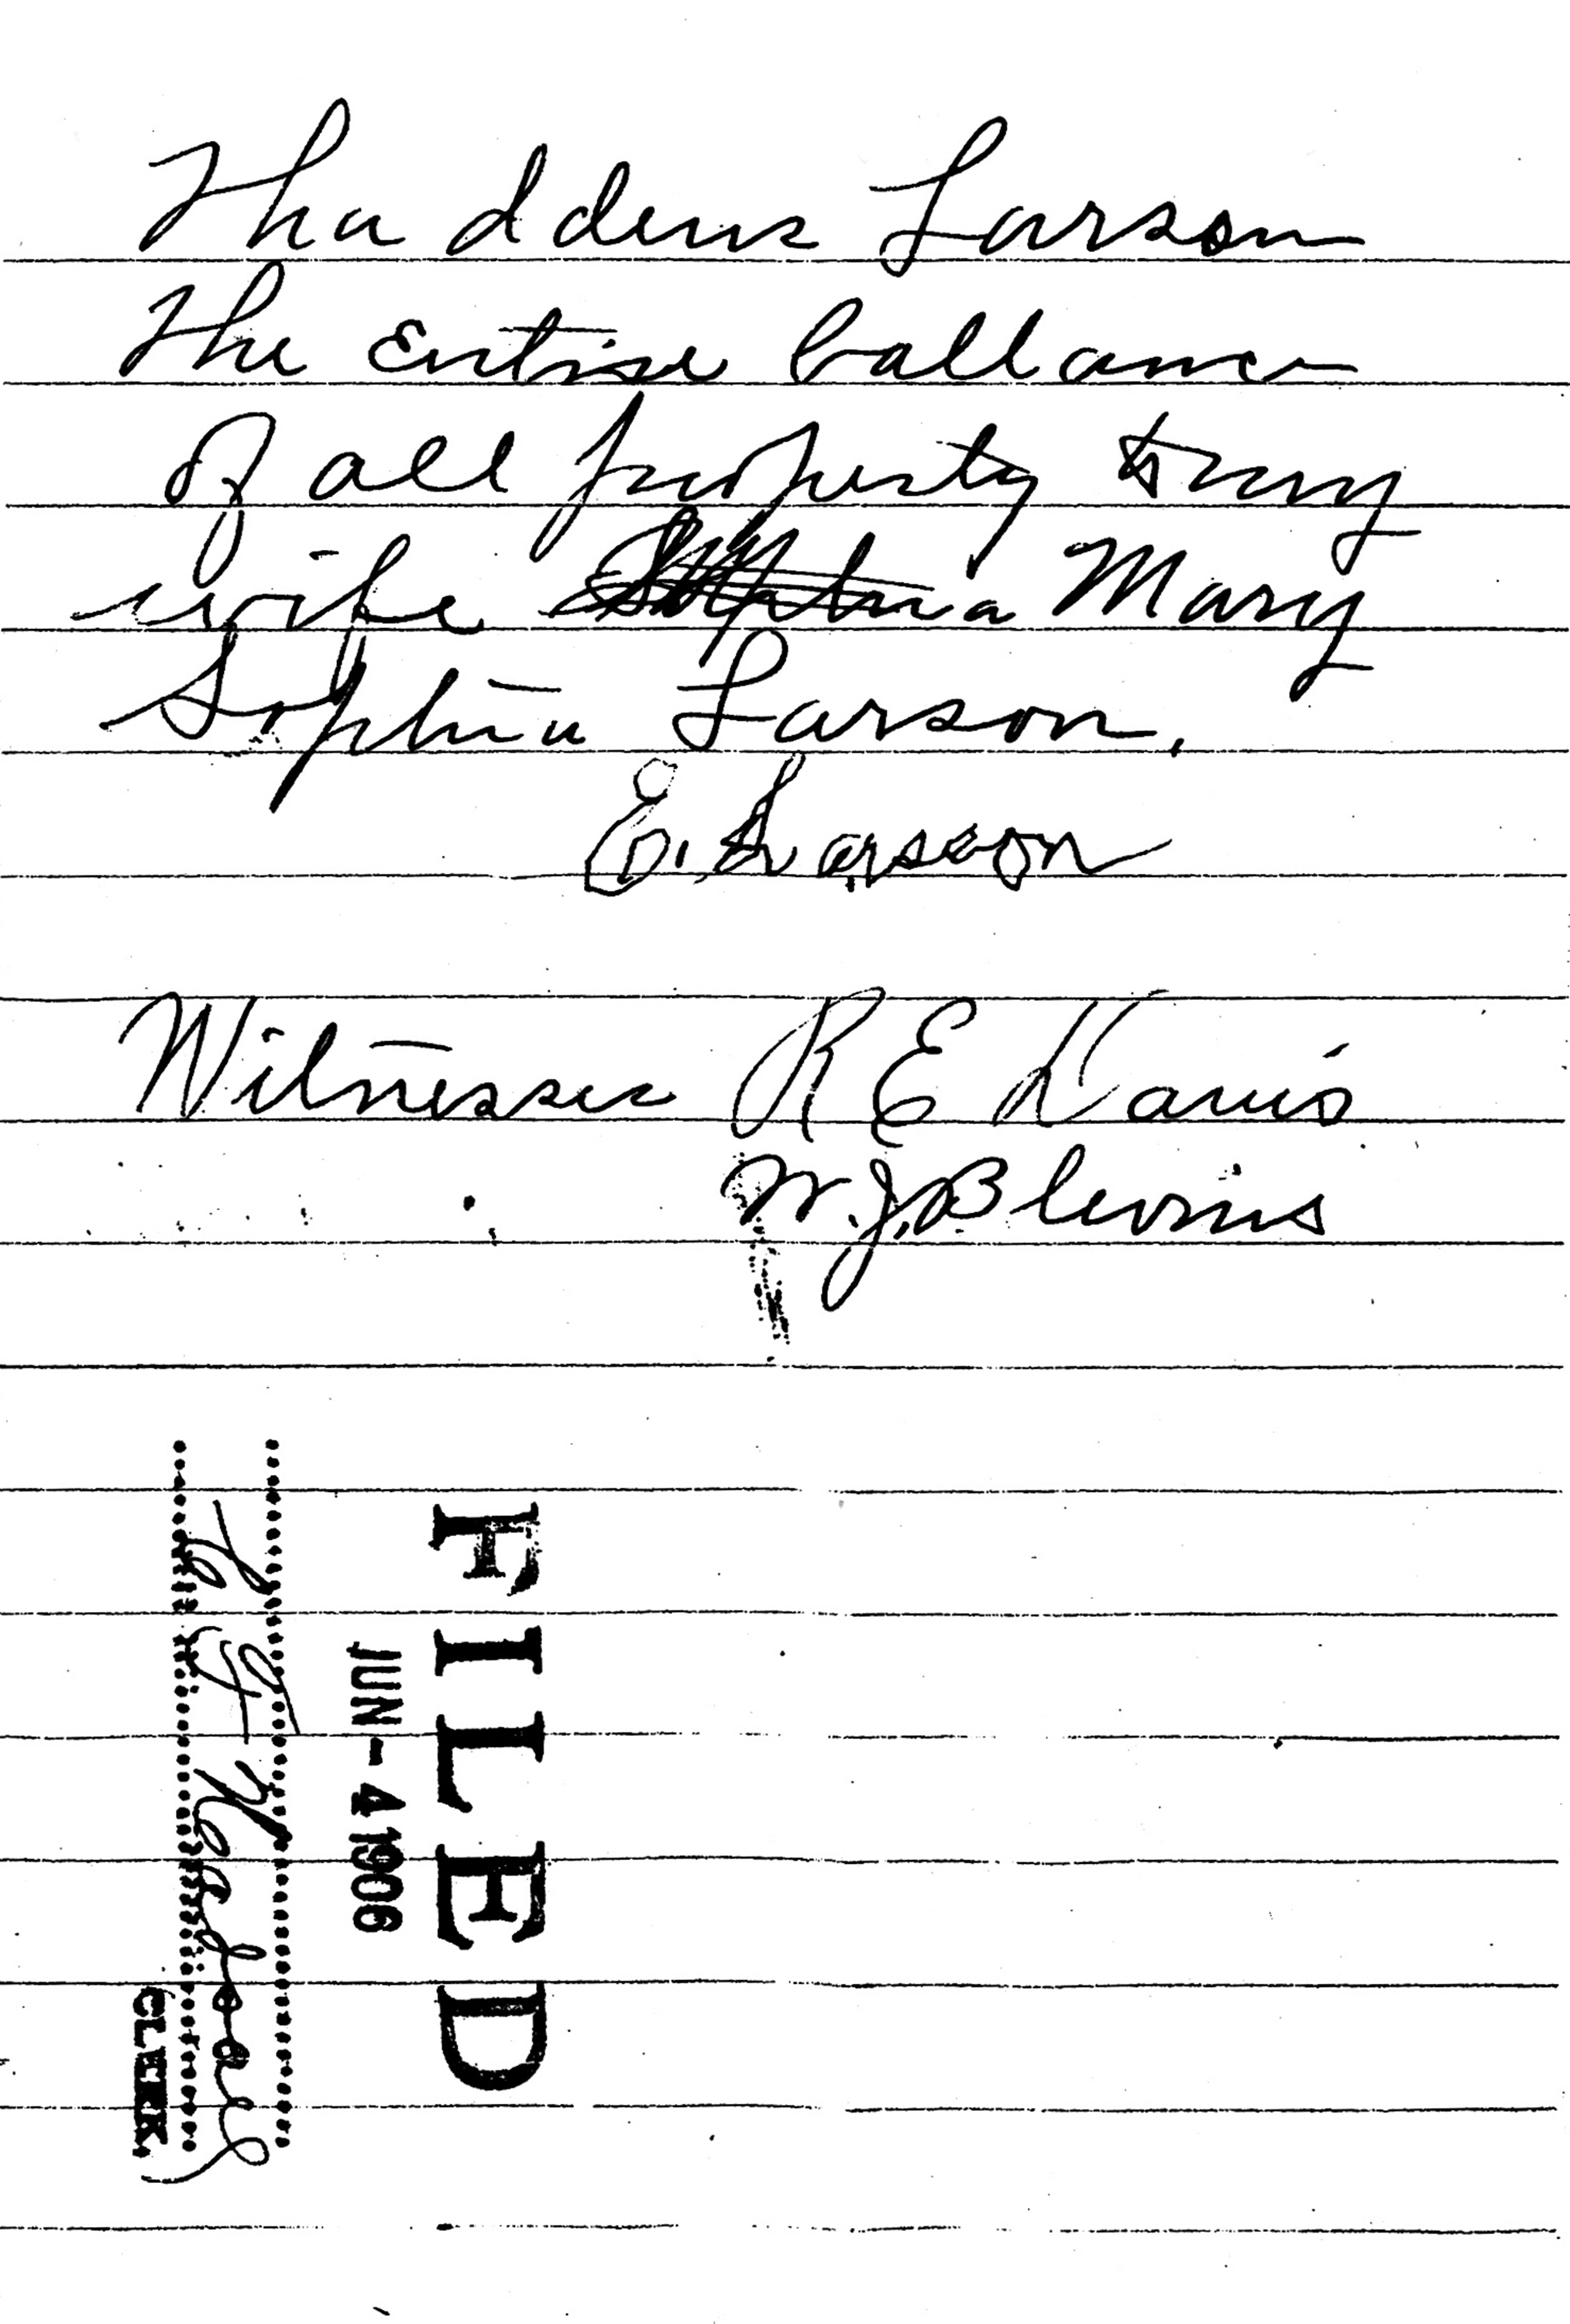 Thaddeus Larson
the Entire ballance
of all property to my
wife Sophia Mary
Sophia Larson.
E. Larson
Witnesses R E Davis
W. J. Blevins
FILED
JUN - 4 1906
CLERK.